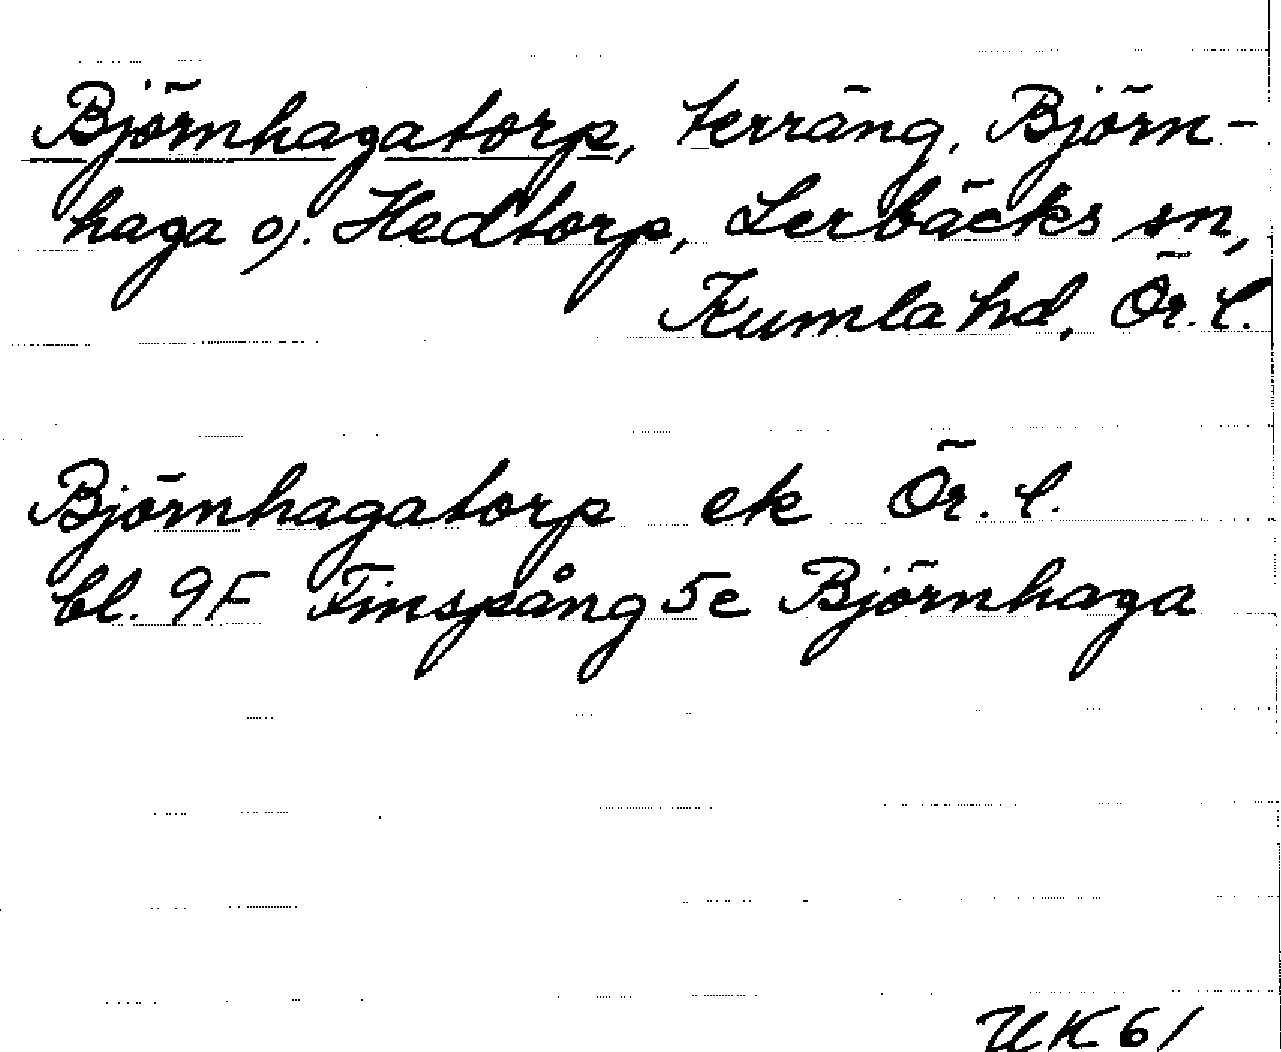 Björnhagatorp, terräng, Björn-
haga o. Hedtorp, Lerbäcks sn,
Kumla hd, Ör. l.
Björnhagatorp ek Ör. l.
bl. 9F Finspång 5c Björnhaga
UK61